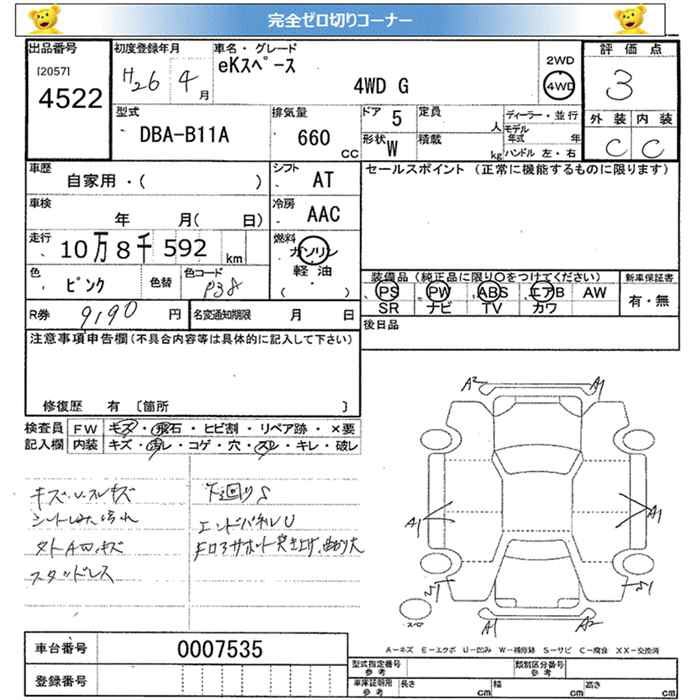 完全ゼロ切りコーナー
出品番号
[2057]
4522
初度登録年月
H26 4月
車名・グレード
eKスペース
4WD G
2WD
4WD
評価点
3
外装 内装
C C
型式
DBA-B11A
排気量
660
CC
ドア 5
形状 W
定員
人
積載
kg
ディーラー・並行
モデル年式 年
ハンドル 左・右
車歴
自家用・( )
シフト
AT
セールスポイント (正常に機能するものに限ります)
車検
年 月( 日)
冷房
AAC
走行
10万8千592 km
燃料
ガソリン
軽油
( )
色
ピンク
色替
色コード
P38
装備品(純正品に限り〇をつけてください)
PS PW ABS エアB AW
SR ナビ TV カワ
新車保証書
有・無
R券 9190 円
名変通知期限 月 日
後日品
注意事項申告欄(不具合内容等は具体的に記入して下さい)
修復歴 有 〔箇所 〕
検査員記入欄
FW キズ・飛石・ヒビ割・リペア跡・×要
内装 キズ・汚レ・コゲ・穴・スレ・キレ・破レ
キズ・U・スレキズ
シートしみ汚れ
タトA凹キズ
スタッドレス
下廻りS
エンドパネルU
Fロアサポート突き上げ、曲り大
A2 A1
A1 A1
S1 S1
A1 A2
スペア
A－キズ E－エクボ U－凹み W－補修跡 S－サビ C－腐食 XX－交換済
車台番号
0007535
登録番号
型式指定番号
参考
類別区分番号
参考
車庫証明用
参考
長さ cm
幅 cm
高さ cm